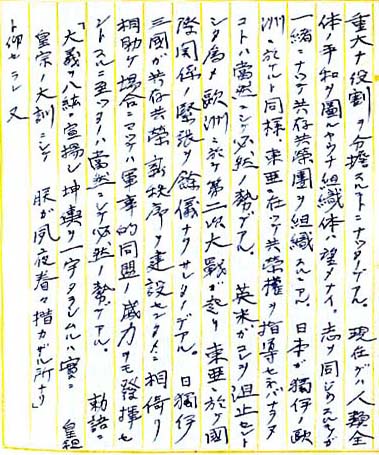 重大ナ役割ヲ分擔スルコトニナツタノデアル。現在デハ人類全
体ノ平和ヲ圖ルヤウナ組織体ハ望メナイ。志ヲ同ジウスルモノガ
一緒ニナツテ共存共榮圏ヲ組織スルニアル。日本ガ獨伊ノ歐
洲ニ於ルト同様、東亜ニ在ツテ共榮權ヲ指導セネバナラヌ
コトハ當然ニシテ必然ノ勢デアル。英米ガコレヲ阻止セント
シタ為メ歐洲ニ於テ第二次大戰ガ起リ東亜ニ於テ國
際関係ノ緊張ヲ餘儀ナクサレタノデアル。日獨伊
三國ガ共存共榮ノ新秩序ヲ建設センタメニ相倚リ
相助ケ場合ニヨツテハ軍事的同盟ノ威力ヲモ發揮セ
ントスルニ至ツタノハ當然ニシテ必然ノ勢デアル。勅語ニ
「大義ヲ八紘ニ宣揚シ坤輿ヲ一宇タラシムルハ實ニ皇祖
皇宗ノ大訓ニシテ朕ガ夙夜眷々措カザル所ナリ」
ト仰セラレ又